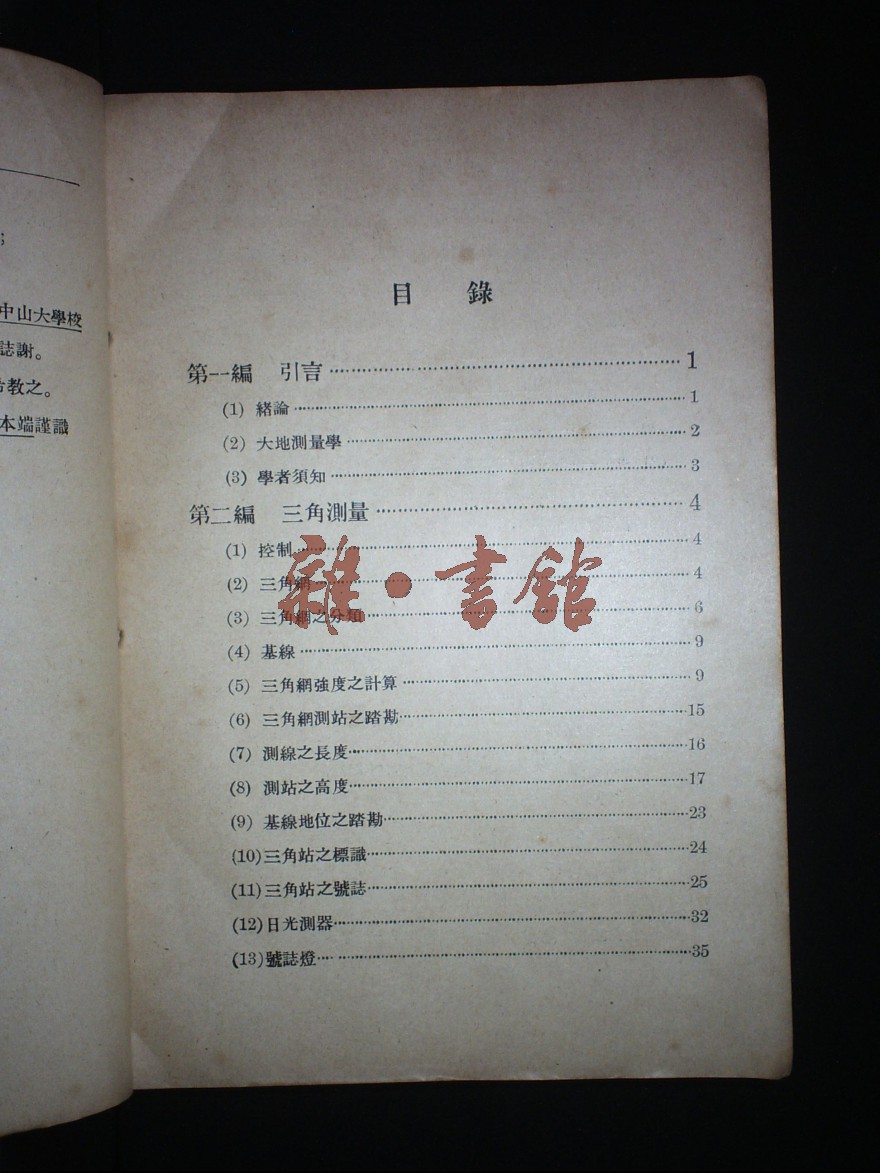 中山大學校
誌謝。
教之。
本端謹識
目 錄
第一編 引言 1
(1) 緒論 1
(2) 大地測量學 2
(3) 學者須知 3
第二編 三角測量 4
(1) 控制 4
(2) 三角網 4
(3) 三角網之分類 6
(4) 基線 9
(5) 三角網強度之計算 9
(6) 三角網測站之踏勘 15
(7) 測線之長度 16
(8) 測站之高度 17
(9) 基線地位之踏勘 23
(10)三角站之標識 24
(11)三角站之號誌 25
(12)日光測器 32
(13)號誌燈 35
雜·書館